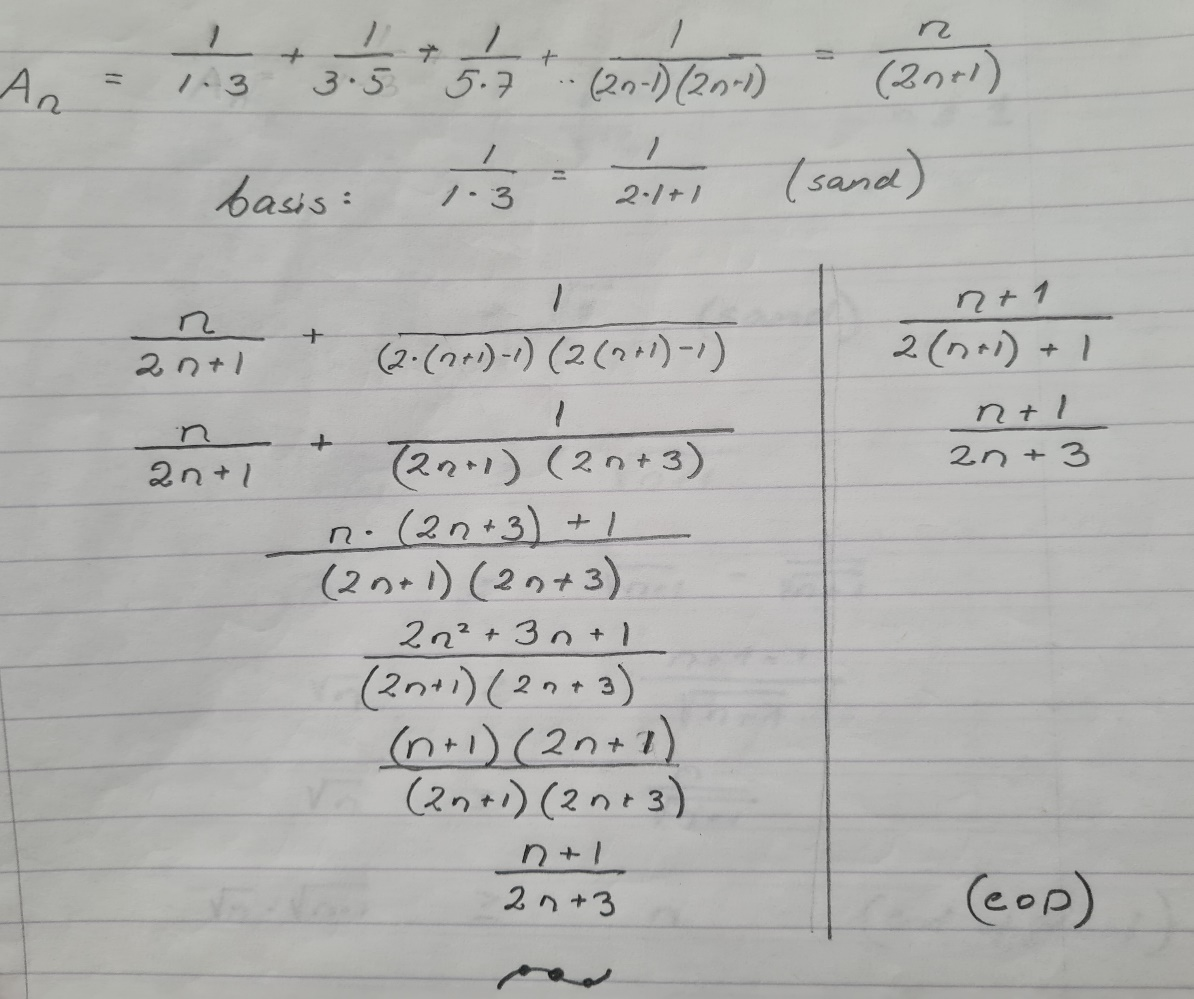 A_n = 1/(1·3) + 1/(3·5) + 1/(5·7) + .. 1/((2n-1)(2n+1)) = n/(2n+1)
basis: 1/(1·3) = 1/(2·1+1) (sand)
n/(2n+1) + 1/((2·(n+1)-1)(2(n+1)-1)) | (n+1)/(2(n+1)+1)
n/(2n+1) + 1/((2n+1)(2n+3)) | (n+1)/(2n+3)
(n·(2n+3)+1)/((2n+1)(2n+3))
(2n²+3n+1)/((2n+1)(2n+3))
((n+1)(2n+1))/((2n+1)(2n+3))
(n+1)/(2n+3) (eop)